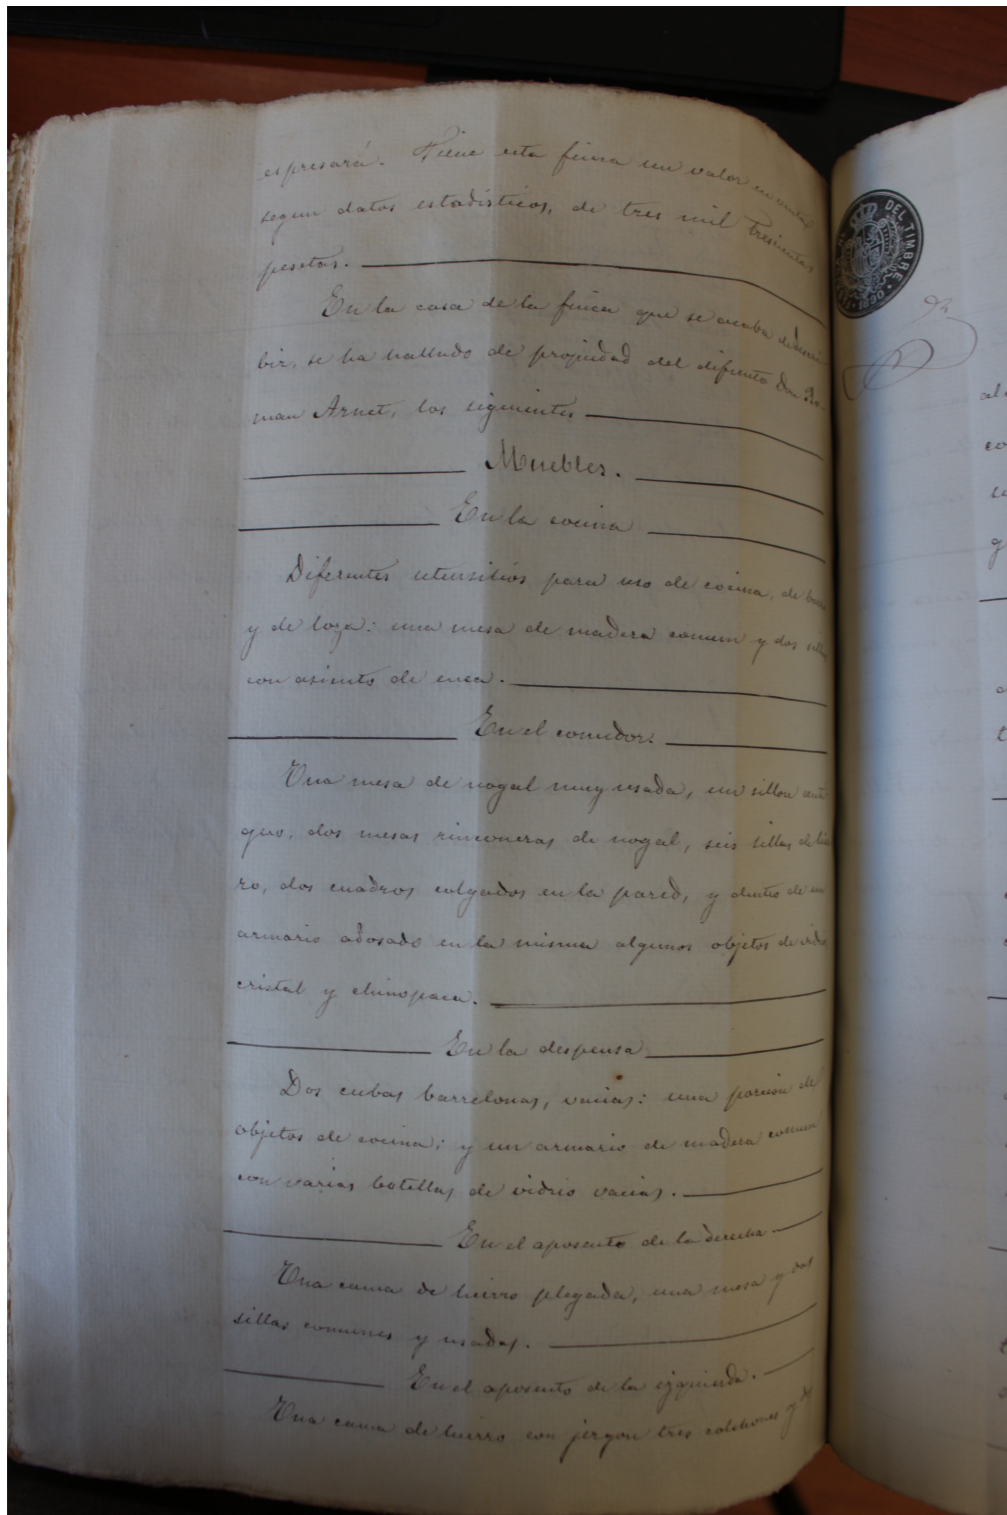 espresará. Tiene esta finca un valor en venta
segun datos estadísticos, de tres mil trescientas
pesetas.
En la casa de la finca que se acaba de descri-
bir, se ha hallado de propiedad del difunto Don Ra-
mon Arnet, los siguientes
Muebles.
En la cocina
Diferentes utensilios para uso de cocina, de barro
y de loza: una mesa de madera comun y dos sillas
con asiento de enea.
En el comedor.
Una mesa de nogal muy usada, un sillon anti-
guo, dos mesas rinconeras de nogal, seis sillas de hier-
ro, dos cuadros colgados en la pared, y dentro de un
armario adosado en la misma algunos objetos de vidrio
cristal y chinopaca.
En la despensa
Dos cubas barrelonas, vacias: una porcion de
objetos de cocina; y un armario de madera comun
con varias botellas de vidrio vacias.
En el aposento de la derecha.
Una cama de hierro plegada, una mesa y dos
sillas comunes y usadas.
En el aposento de la izquierda.
Una cama de hierro con jergon tres colchones y dos
DEL TIMBRE
1890